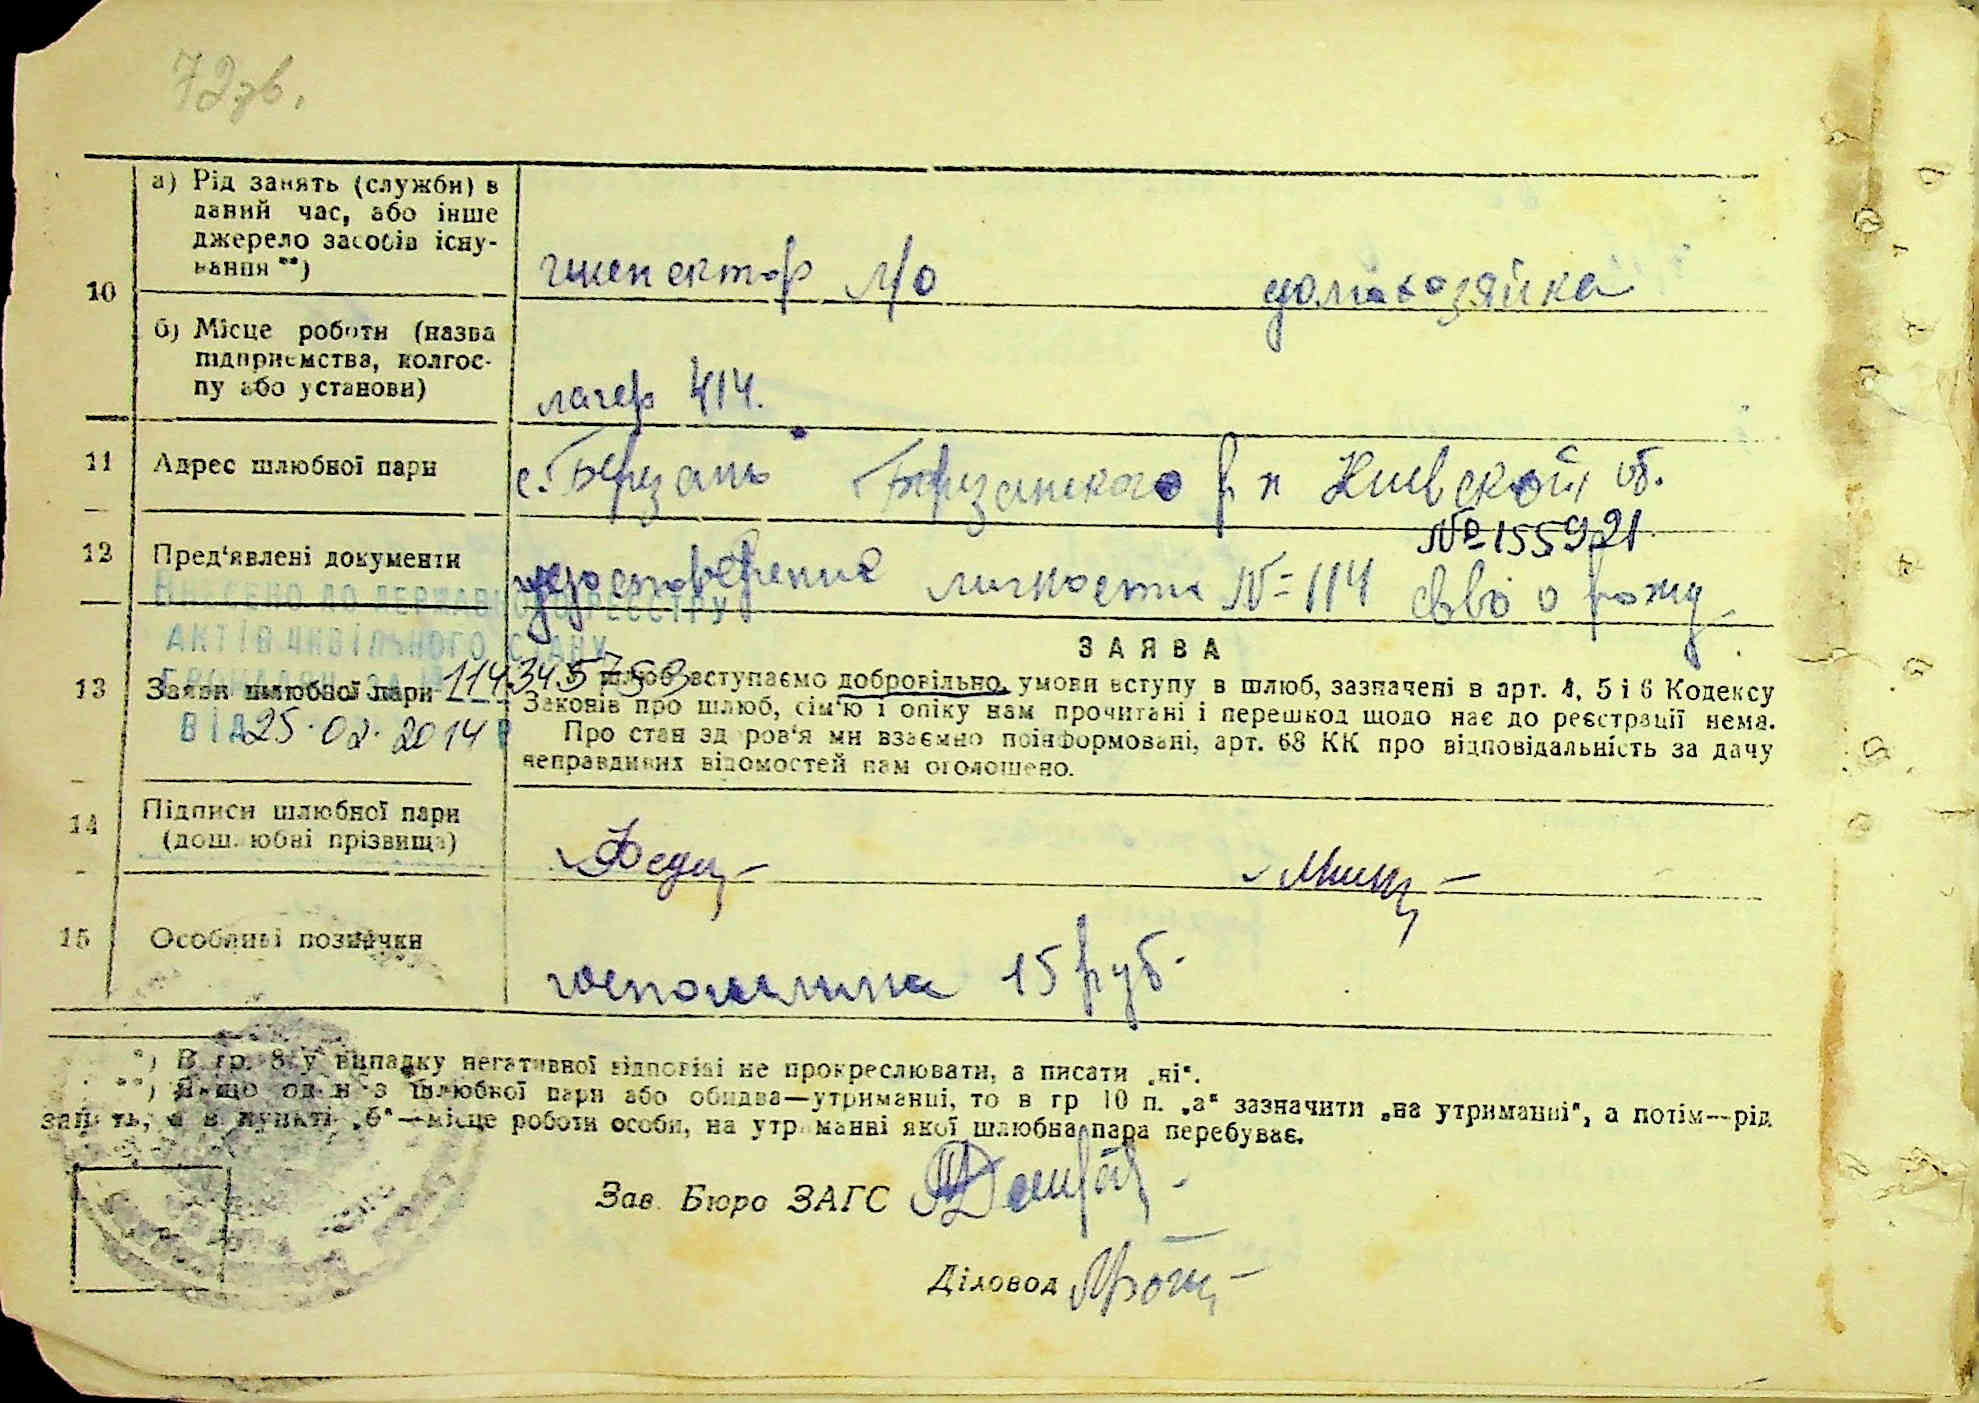 72 зв.
а) Рід занять (служби) в
даний час, або інше
джерело засобів існу-
вання **)
инспектор л/о домохозяйка
10
б) Місце роботи (назва
підприємства, колгос-
пу або установи)
лагер 414.
11 Адрес шлюбної пари с. Березань Березанского р н Киевской об.
№ 155921
12 Пред'явлені документи удостоверение личности № 114 св во о рожд
ВНЕСЕНО ДО ДЕРЖАВНОГО РЕЄСТРУ
АКТІВ ЦИВІЛЬНОГО СТАНУ
ГРОМАДЯН ЗА № 114345753
ВІД 25.02.2014 Р
13 Заяви шлюбної пари
ЗАЯВА
У шлюб вступаємо добровільно, умови вступу в шлюб, зазначені в арт. 4, 5 і 6 Кодексу
Законів про шлюб, сім'ю і опіку нам прочитані і перешкод щодо нає до реєстрації нема.
Про стан здоров'я ми взаємно поінформовані, арт. 68 КК про відповідальність за дачу
неправдивих відомостей нам оголошено.
14 Підписи шлюбної пари
(дошлюбні прізвища)
15 Особливі позначки
госпошлина 15 руб.
*) В гр. 8 у випадку негативної відповіді не прокреслювати, а писати „ні“.
**) Якщо один з шлюбної пари або обидва—утриманці, то в гр 10 п. „а“ зазначити „на утриманні“, а потім—рід
занять, а в пункті „б“—місце роботи особи, на утриманні якої шлюбна пара перебуває.
Зав. Бюро ЗАГС
Діловод